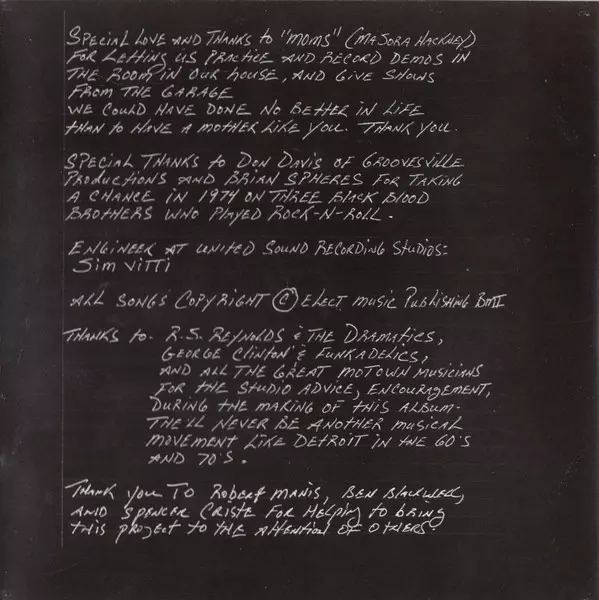 SPECIAL LOVE AND THANKS TO "MOMS" (MAJORA HACKNEY)
FOR LETTING US PRACTICE AND RECORD DEMOS IN
THE ROOM IN OUR HOUSE, AND GIVE SHOWS
FROM THE GARAGE
WE COULD HAVE DONE NO BETTER IN LIFE
THAN TO HAVE A MOTHER LIKE YOU. THANK YOU.
SPECIAL THANKS TO DON DAVIS OF GROOVESVILLE
PRODUCTIONS AND BRIAN SPHERES FOR TAKING
A CHANCE IN 1974 ON THREE BLACK BLOOD
BROTHERS WHO PLAYED ROCK-N-ROLL.
ENGINEER AT UNITED SOUND RECORDING STUDIOS:
JIM VITTI
ALL SONGS COPYRIGHT © ELECT MUSIC PUBLISHING BMI
THANKS TO- R.S. REYNOLDS & THE DRAMATICS,
GEORGE CLINTON & FUNKADELICS,
AND ALL THE GREAT MOTOWN MUSICIANS
FOR THE STUDIO ADVICE, ENCOURAGEMENT,
DURING THE MAKING OF THIS ALBUM-
THE'LL NEVER BE ANOTHER MUSICAL
MOVEMENT LIKE DETROIT IN THE 60'S
AND 70'S.
THANK YOU TO ROBERT MANIS, BEN BLACKWELL,
AND SPENCER CRISTE FOR HELPING TO BRING
THIS PROJECT TO THE ATTENTION OF OTHERS.